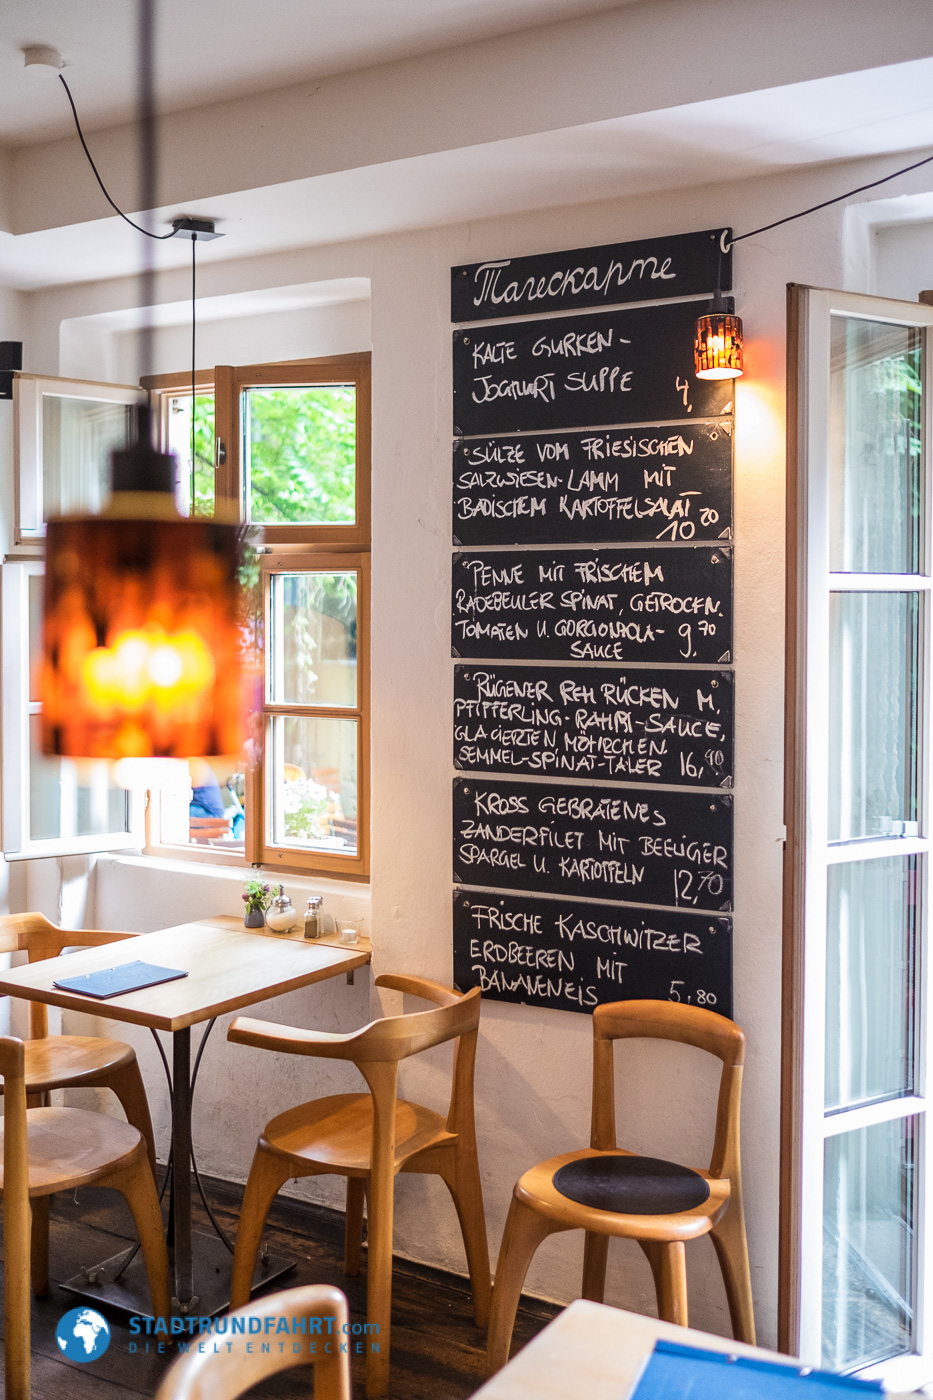 Тагескарте
KALTE GURKEN-
JOGHURT SUPPE 4,
SÜLZE VOM FRIESISCHEN
SALZWIESEN-LAMM MIT
BADISCHEM KARTOFFELSALAT
10 20
PENNE MIT FRISCHEM
RADEBEULER SPINAT, GETROCKN.
TOMATEN U. GORGONZOLA- 9,70
SAUCE
RÜGENER REH RÜCKEN M.
PFIFFERLING-RAHM-SAUCE,
GLACIERTEN MÖHRCHEN
SEMMEL-SPINAT-TALER 16,90
KROSS GEBRATENES
ZANDERFILET MIT BEELIGER
SPARGEL U. KARTOFFELN
12,70
FRISCHE KASCHWITZER
ERDBEEREN MIT
BANANENEIS 5,80
STADTRUNDFAHRT.com
DIE WELT ENTDECKEN